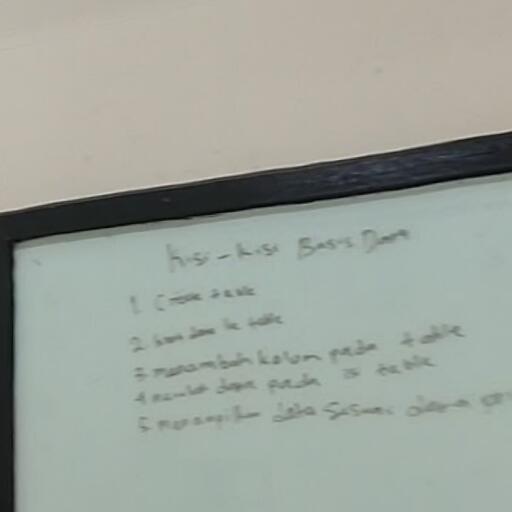 Kisi - Kisi Basis Data
1. Create table
2. data ke table
3. menambah kolom pada table
4. data pada table
5. menampilkan data sesuai dengan